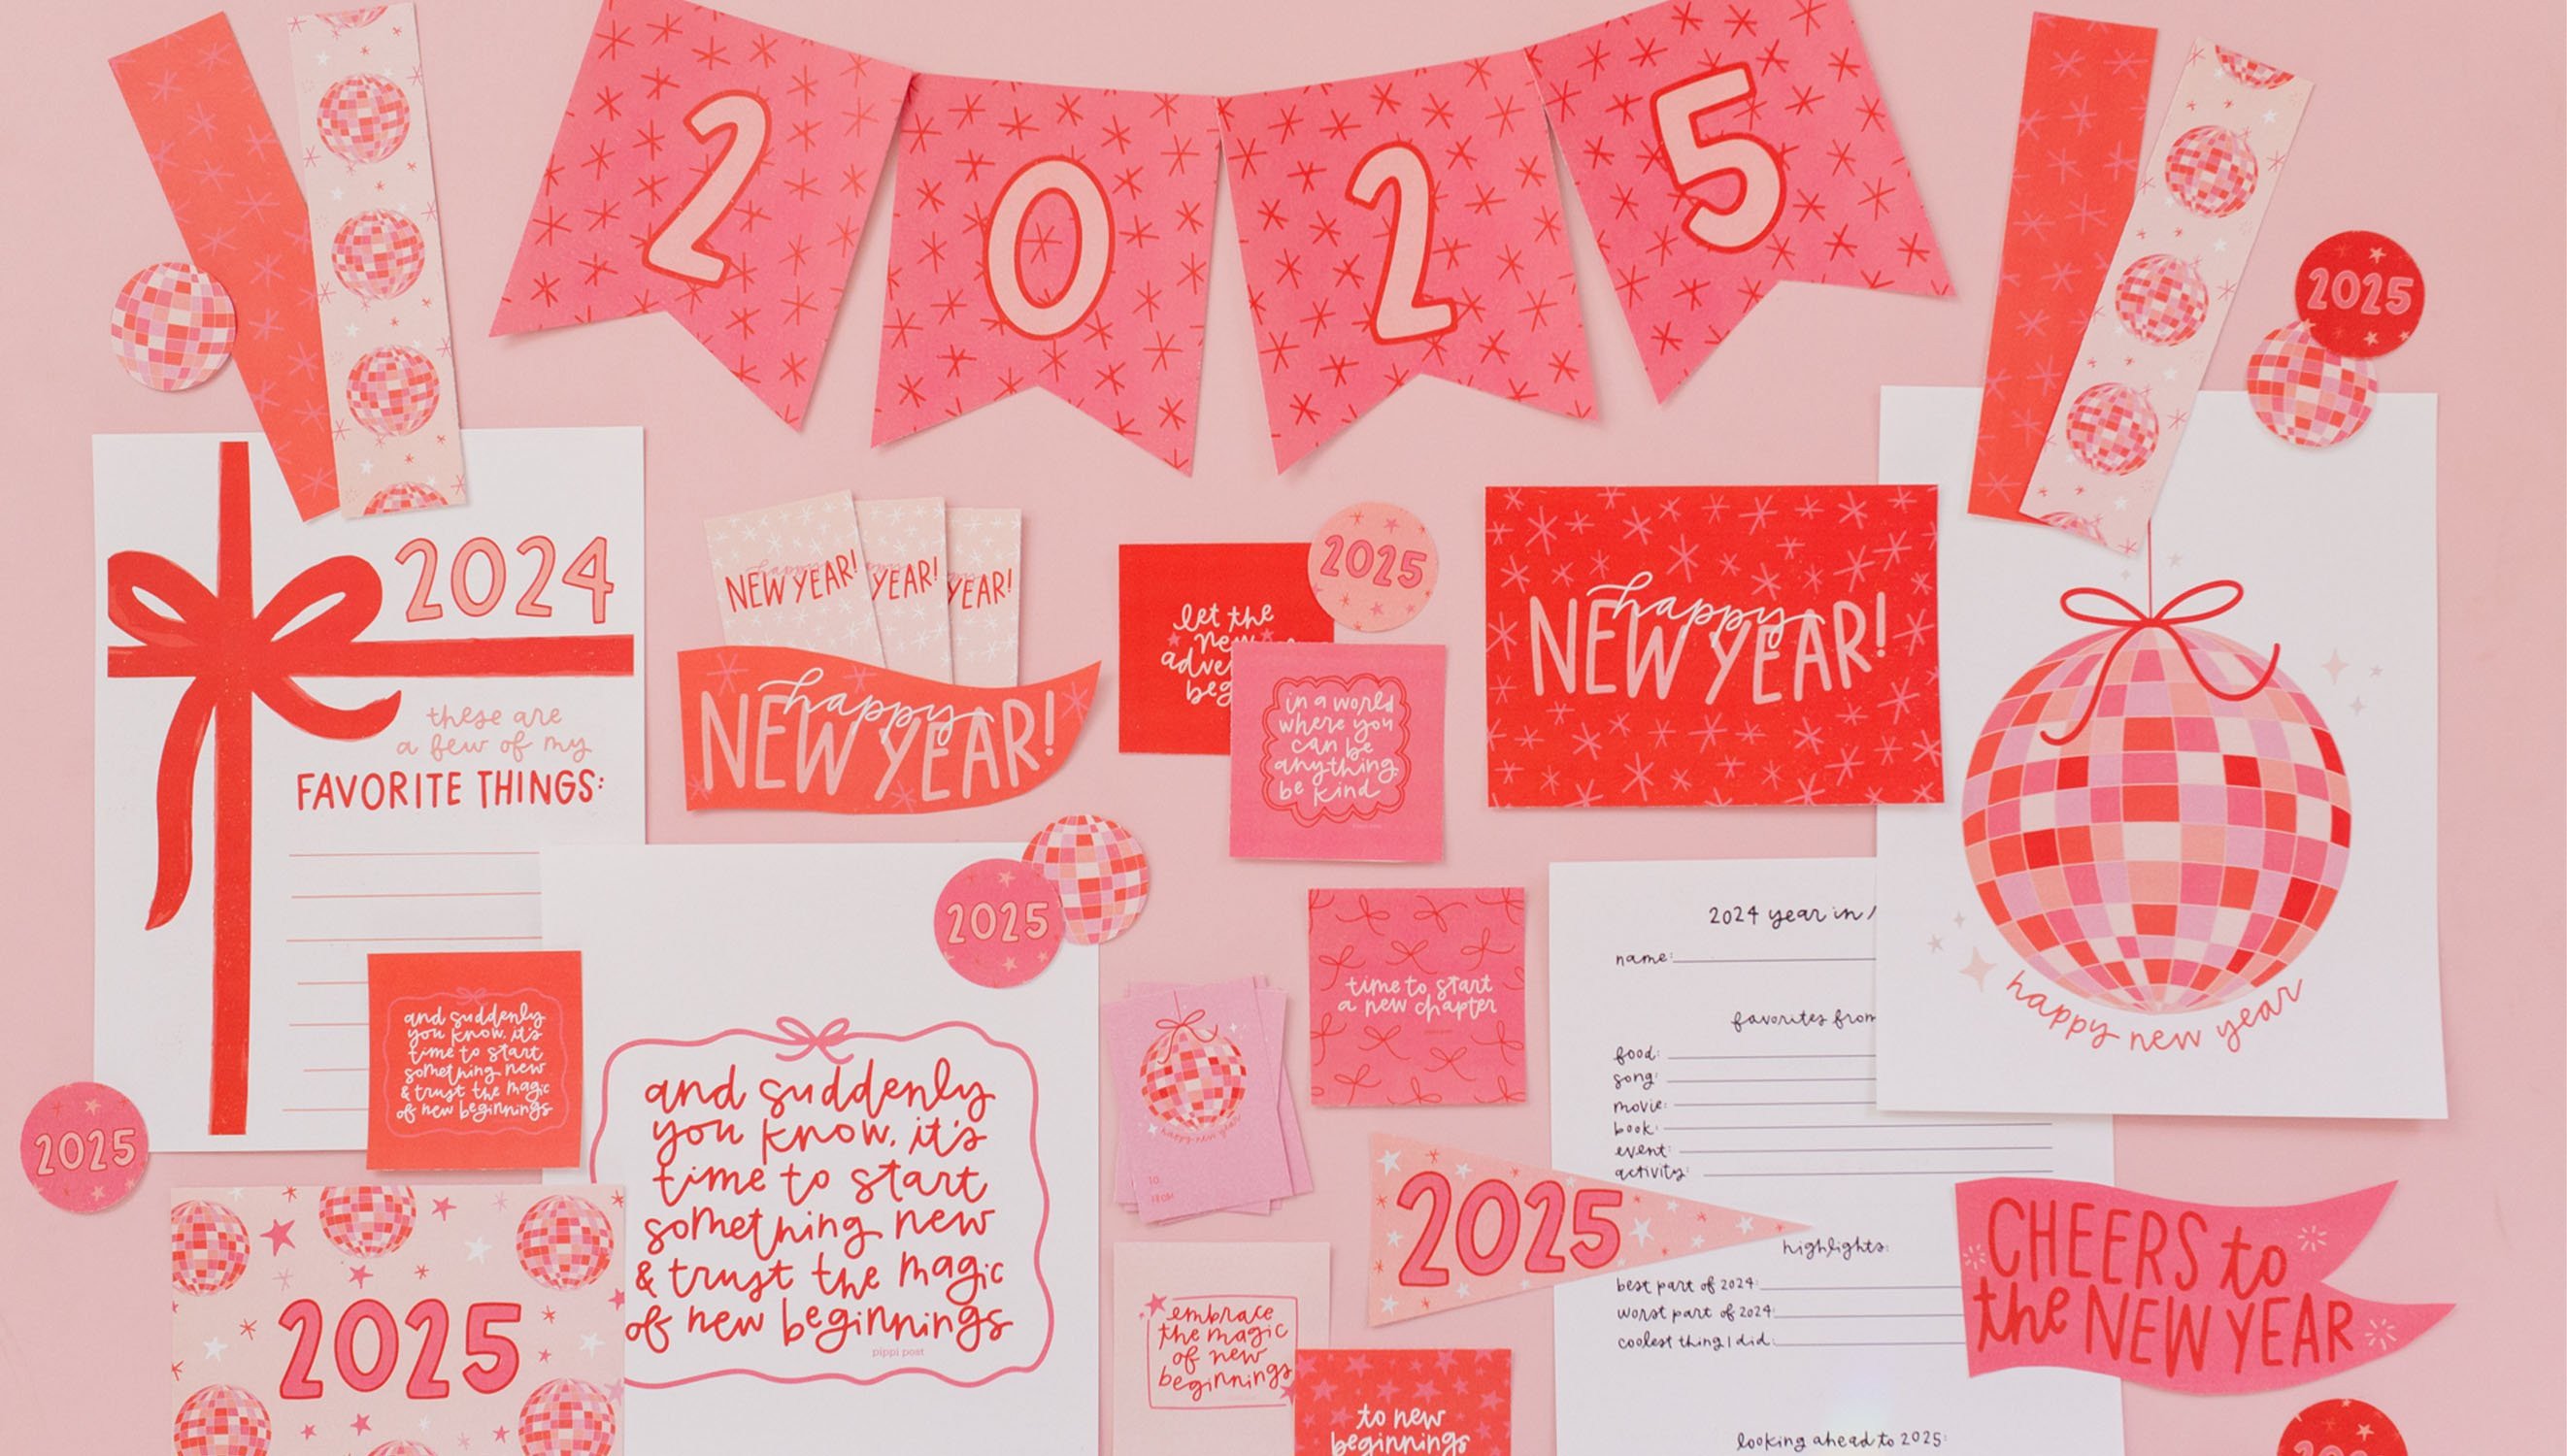 2025
2025
2024
these are
a few of my
FAVORITE THINGS:
happy
NEW YEAR!
YEAR!
YEAR!
happy
NEW YEAR!
let the
new
beg
2025
in a world
where you
can be
anything
be kind
happy
NEW YEAR!
happy new year
2025
and suddenly
you know, it's
time to start
something new
& trust the magic
of new beginnings
2025
and suddenly
you know, it's
time to start
something new
& trust the magic
of new beginnings
pippi post
2025
happy new year
TO:
FROM:
time to start
a new chapter
2024 year in
name:
favorites from
food:
song:
movie:
book:
event:
activity:
highlights:
best part of 2024:
worst part of 2024:
coolest thing I did:
looking ahead to 2025:
2025
CHEERS to
the NEW YEAR
embrace
the magic
of new
beginnings
to new
beginnings